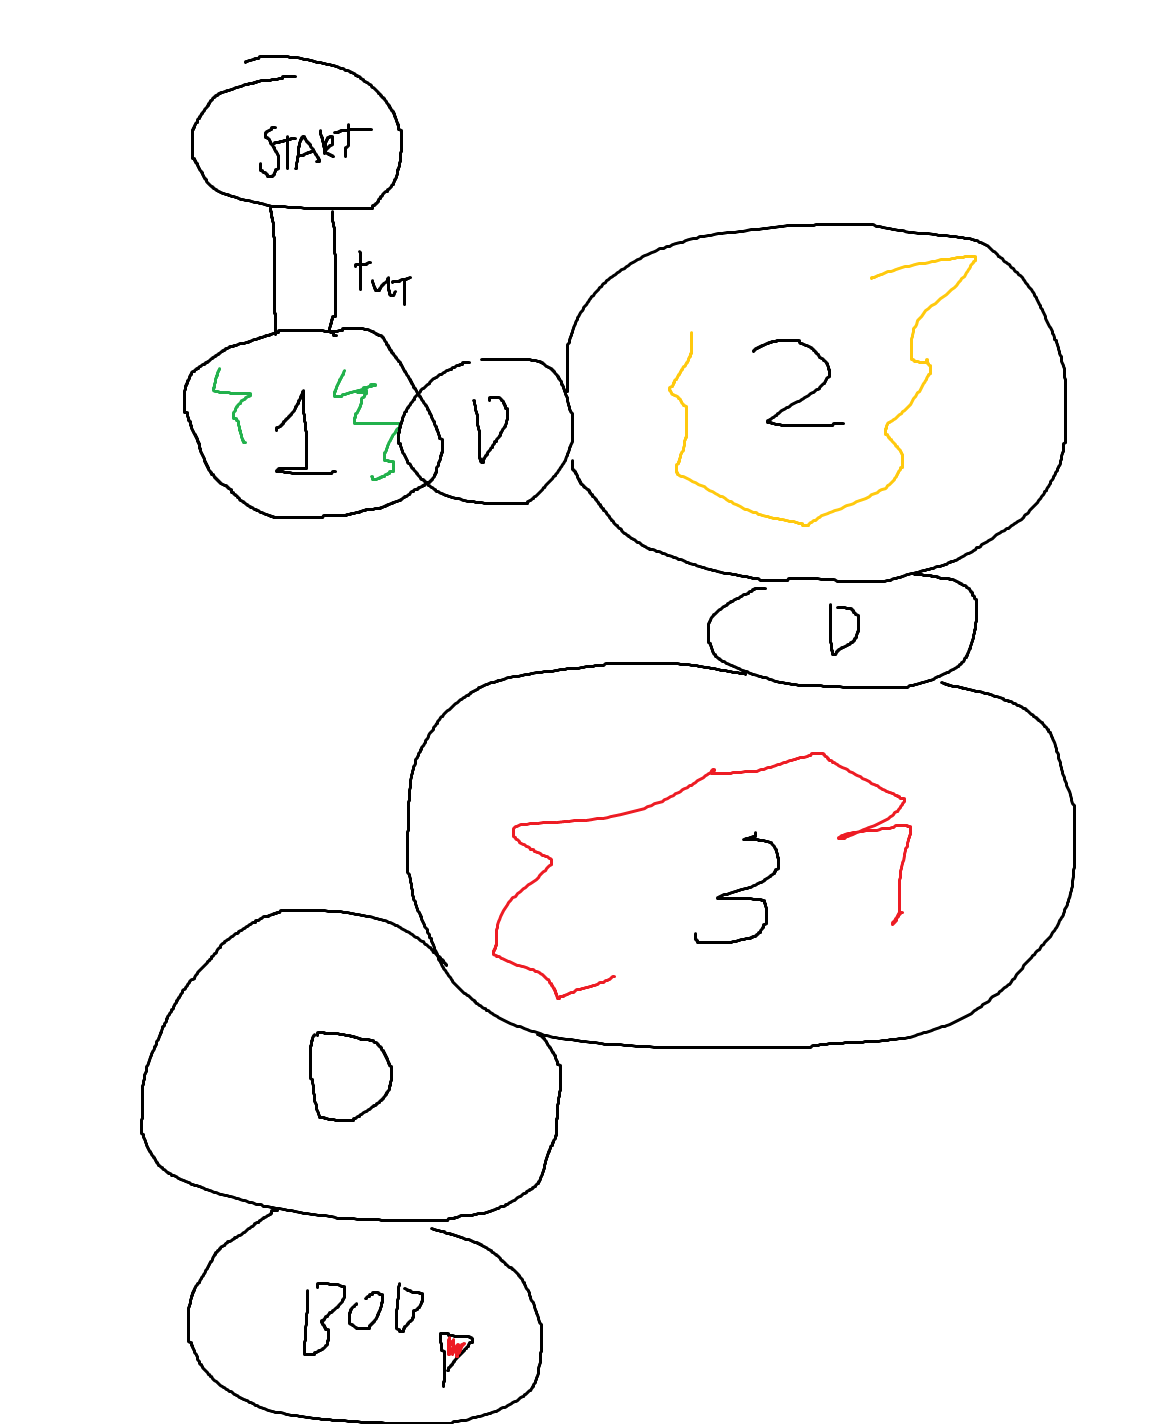 START
tut
1
D
2
D
3
D
BOD